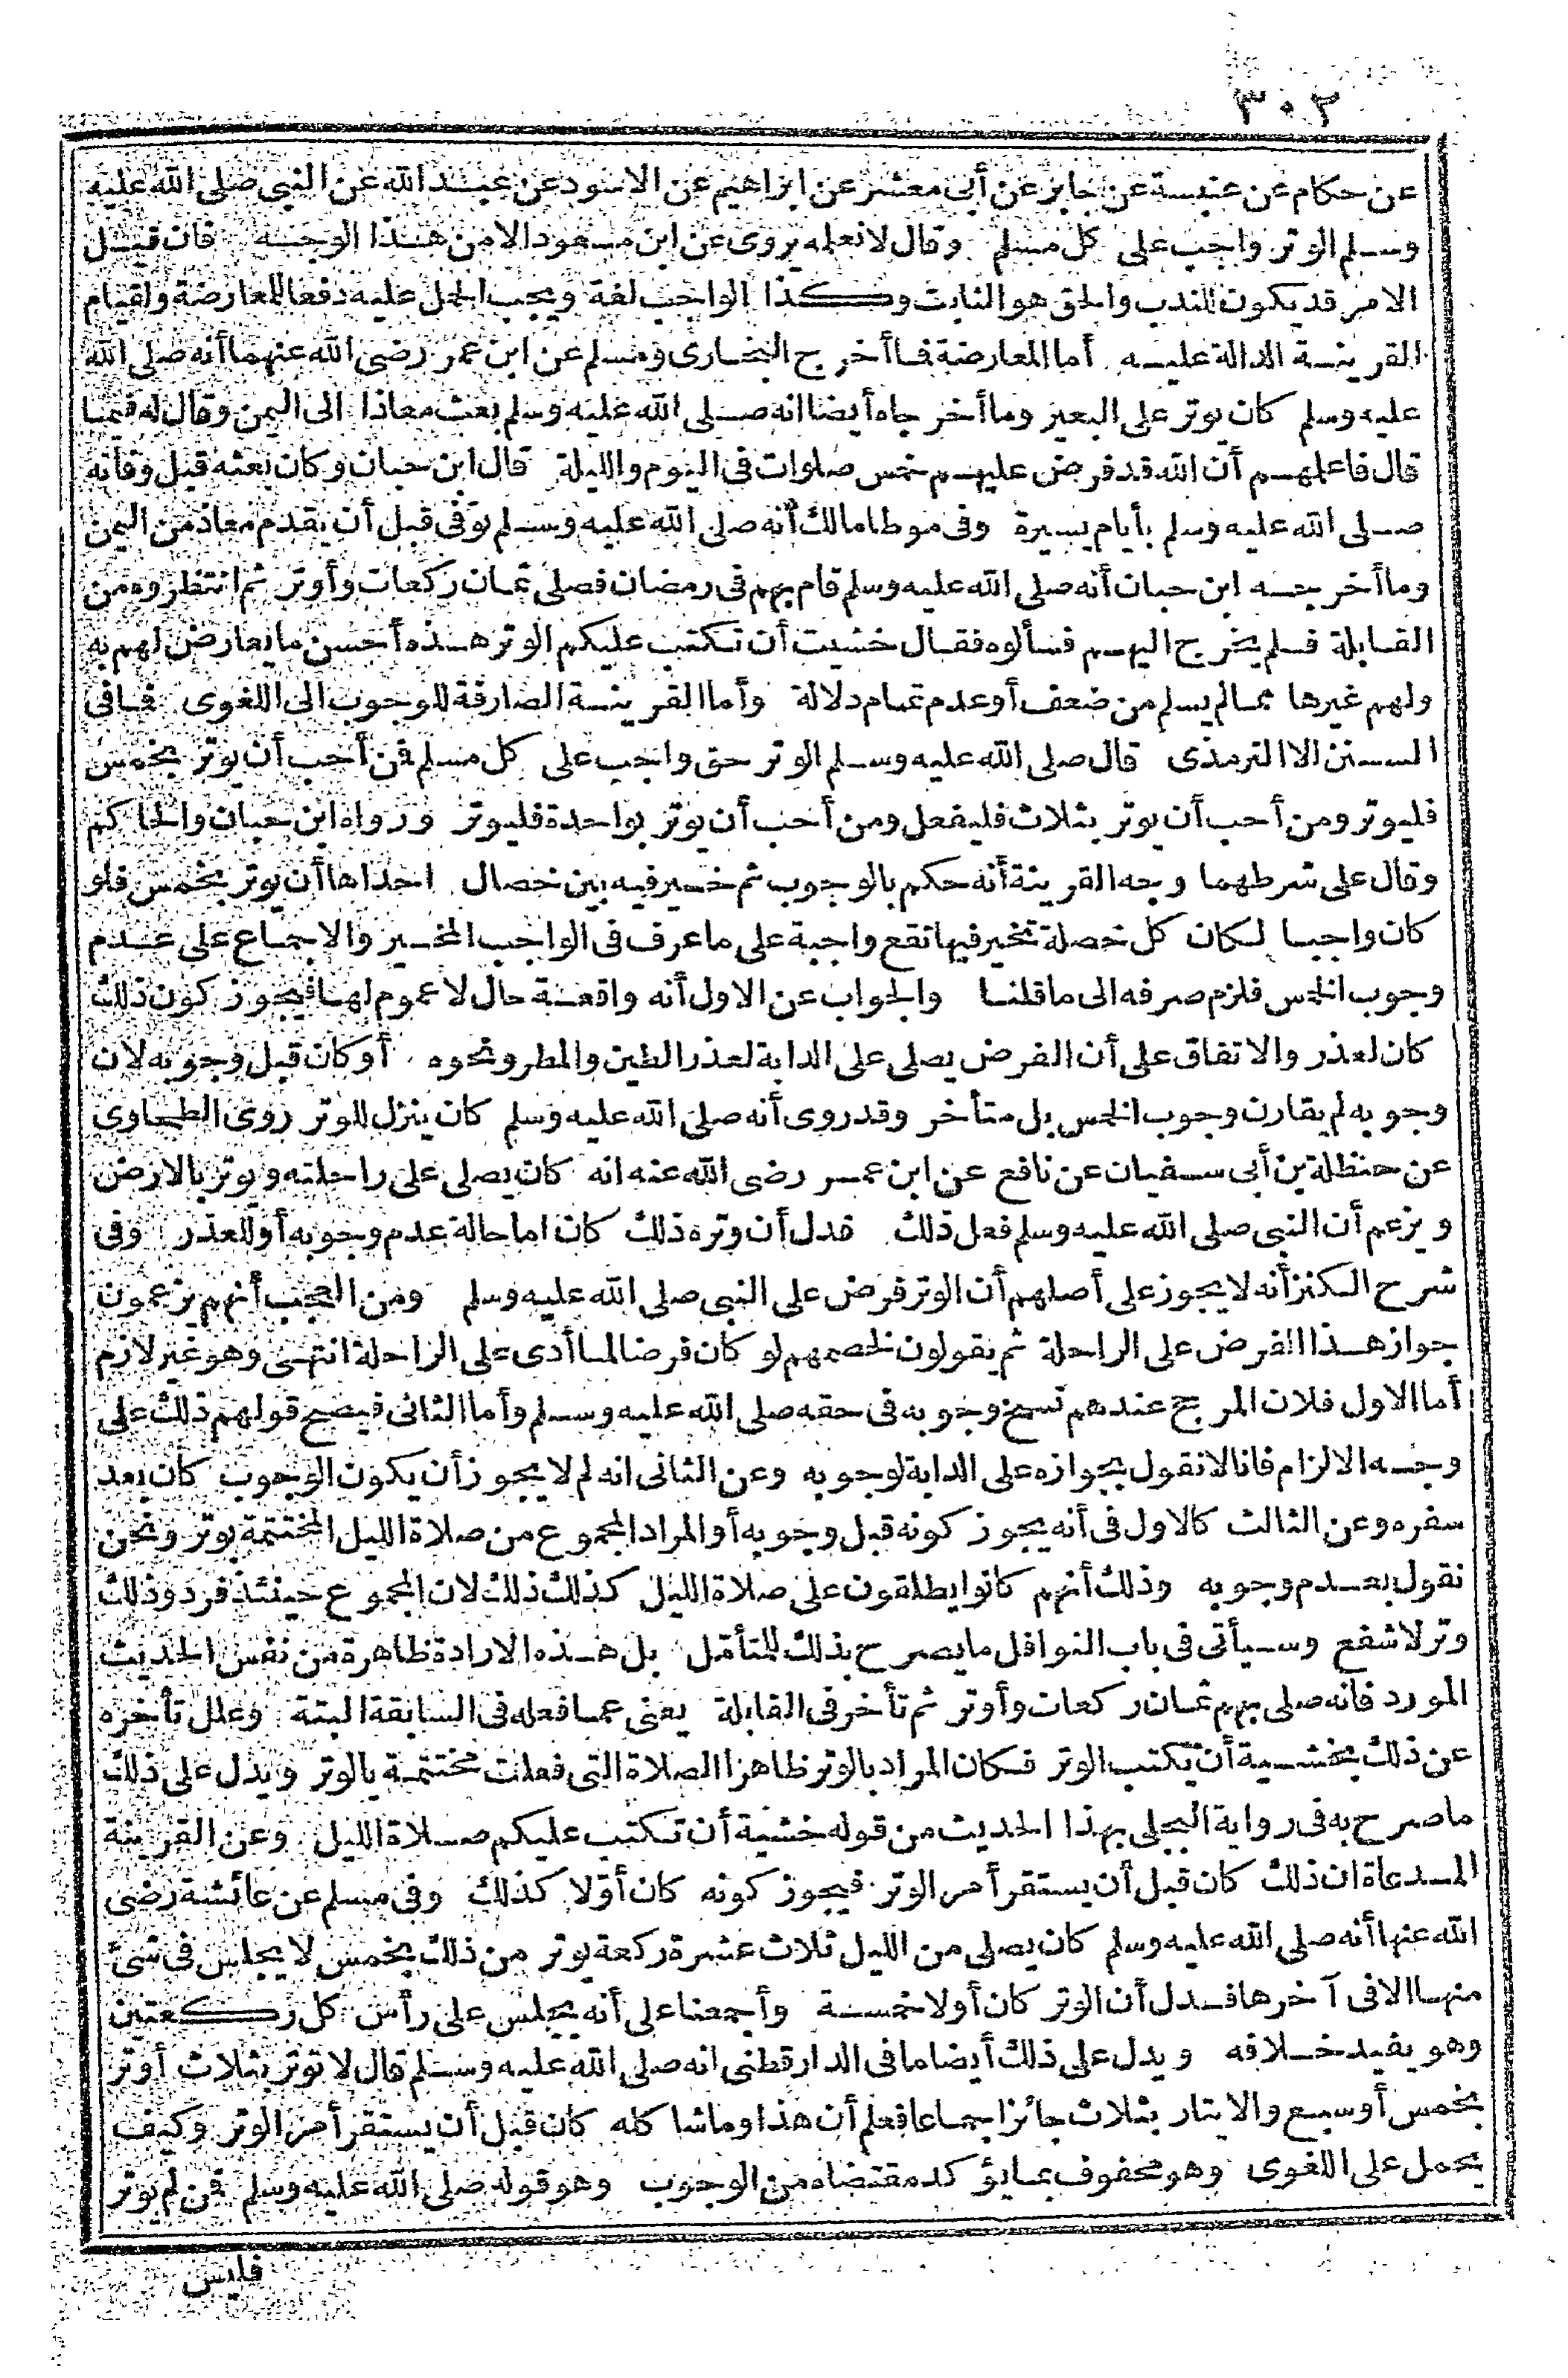 ٣٠٢
عن حكام عن عنبسة عن جابر عن أبى معشر عن ابراهيم عن الاسود عن عبد الله عن النبى صلى الله عليه
وسلم الوتر واجب على كل مسلم وقال لا نعلمه يروى عن ابن مسعود الا من هذا الوجه فان قيل
الامر قد يكون للندب والحق هو الثابت وكذا الواجب لغة ويجب الحمل عليه دفعا للمعارضة ولقيام
القرينة الدالة عليه أما المعارضة فما أخرج البخارى ومسلم عن ابن عمر رضى الله عنهما أنه صلى الله
عليه وسلم كان يوتر على البعير وما أخرجاه أيضا انه صلى الله عليه وسلم بعث معاذا الى اليمن وقال له فيما
قال فاعلمهم أن الله قد فرض عليهم خمس صلوات فى اليوم والليلة قال ابن حبان وكان بعثه قبل وفاته
صلى الله عليه وسلم بأيام يسيرة وفى موطا مالك أنه صلى الله عليه وسلم توفى قبل أن يقدم معاذ من اليمن
وما أخرجه ابن حبان أنه صلى الله عليه وسلم قام بهم فى رمضان فصلى ثمان ركعات وأوتر ثم انتظروه من
القابلة فلم يخرج اليهم فسألوه فقال خشيت أن تكتب عليكم الوتر هذه أحسن ما يعارض لهم به
ولهم غيرها مما لم يسلم من ضعف أو عدم تمام دلالة وأما القرينة الصارفة للوجوب الى اللغوى فما فى
السنن الا الترمذى قال صلى الله عليه وسلم الوتر حق واجب على كل مسلم فمن أحب أن يوتر بخمس
فليوتر ومن أحب أن يوتر بثلاث فليفعل ومن أحب أن يوتر بواحدة فليوتر ورواه ابن حبان والحاكم
وقال على شرطهما وجه القرينة أنه حكم بالوجوب ثم خير فيه بين خصال احداها أن يوتر بخمس فلو
كان واجبا لكان كل خصلة تخير فيها تقع واجبة على ما عرف فى الواجب المخير والاجماع على عدم
وجوب الخمس فلزم صرفه الى ما قلنا والجواب عن الاول أنه واقعة حال لا عموم لها فيجوز كون ذلك
كان لعذر والاتفاق على أن الفرض يصلى على الدابة لعذر الطين والمطر ونحوه أو كان قبل وجوبه لان
وجوبه لم يقارن وجوب الخمس بل متأخر وقد روى أنه صلى الله عليه وسلم كان ينزل للوتر روى الطحاوى
عن حنظلة بن أبى سفيان عن نافع عن ابن عمر رضى الله عنه انه كان يصلى على راحلته ويوتر بالارض
ويزعم أن النبى صلى الله عليه وسلم فعل ذلك فدل أن وتره ذلك كان اما حالة عدم وجوبه أو للعذر وفى
شرح الكنز أنه لا يجوز على أصلهم أن الوتر فرض على النبى صلى الله عليه وسلم ومن العجب أنهم يزعمون
جواز هذا الفرض على الراحلة ثم يقولون لخصمهم لو كان فرضا لما أدى على الراحلة انتهى وهو غير لازم
أما الاول فلان المرجح عندهم نسخ وجوبه فى حقه صلى الله عليه وسلم وأما الثانى فيصح قولهم ذلك على
وجه الالزام فانا لا نقول بجوازه على الدابة لوجوبه وعن الثانى انه لم لا يجوز أن يكون الوجوب كان بعد
سفره وعن الثالث كالاول فى أنه يجوز كونه قبل وجوبه أو المراد المجموع من صلاة الليل المختتمة بوتر ونحن
نقول بعدم وجوبه وذلك أنهم كانوا يطلقون على صلاة الليل كذلك ذلك لان المجموع حينئذ فرد وذلك
وتر لا شفع وسيأتى فى باب النوافل ما يصرح بذلك للمتأمل بل هذه الارادة ظاهرة من نفس الحديث
المورد فانه صلى بهم ثمان ركعات وأوتر ثم تأخر فى القابلة يعنى عما فعله فى السابقة البتة وعلل تأخره
عن ذلك بخشية أن يكتب الوتر فكان المراد بالوتر ظاهرا الصلاة التى فعلت مختتمة بالوتر ويدل على ذلك
ما صرح به فى رواية البجلى بهذا الحديث من قوله خشية أن تكتب عليكم صلاة الليل وعن القرينة
المدعاة ان ذلك كان قبل أن يستقر أمر الوتر فيجوز كونه كان أولا كذلك وفى مسلم عن عائشة رضى
الله عنها أنه صلى الله عليه وسلم كان يصلى من الليل ثلاث عشرة ركعة يوتر من ذلك بخمس لا يجلس فى شئ
منها الا فى آخرها فدل أن الوتر كان أولا خمسة وأجمعنا على أنه يجلس على رأس كل ركعتين
وهو يفيد خلافه ويدل على ذلك أيضا ما فى الدارقطنى انه صلى الله عليه وسلم قال لا توتر بثلاث أوتر
بخمس أو سبع والايتار بثلاث جائز اجماعا فعلم أن هذا وما شا كله كان قبل أن يستقر أمر الوتر وكيف
يحمل على اللغوى وهو محفوف بما يؤكد مقتضاه من الوجوب وهو قوله صلى الله عليه وسلم فمن لم يوتر
فليس